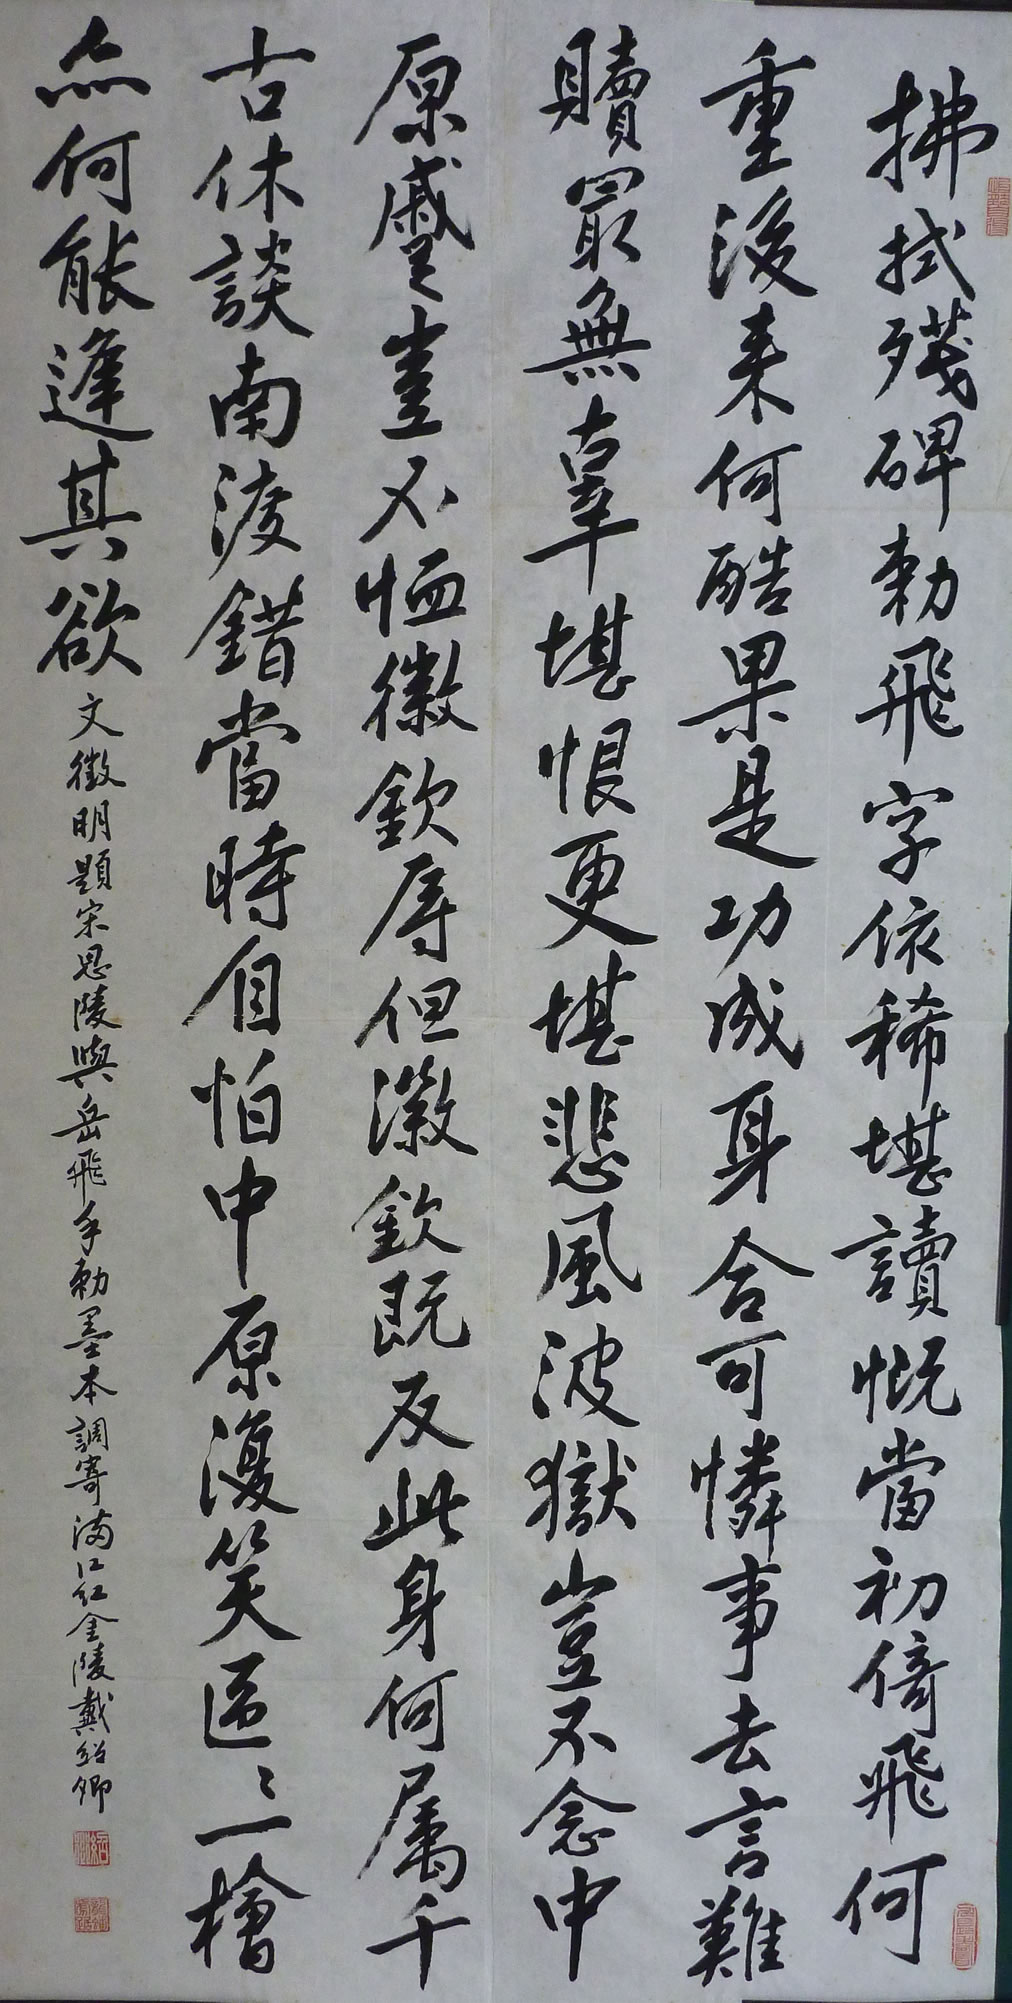 拂拭殘碑勅飛字依稀堪讀慨當初倚飛何
重後來何酷果是功成身合可憐事去言難
贖最無辜堪恨更堪悲風波獄豈不念中
原蹙豈不恤徽欽辱但徽欽既反此身何屬千
古休談南渡錯當時自怕中原復笑區〻一檜
亦何能逢其欲
文徵明題宋思陵與岳飛手勅墨本調寄滿江紅金陵戴紹卿